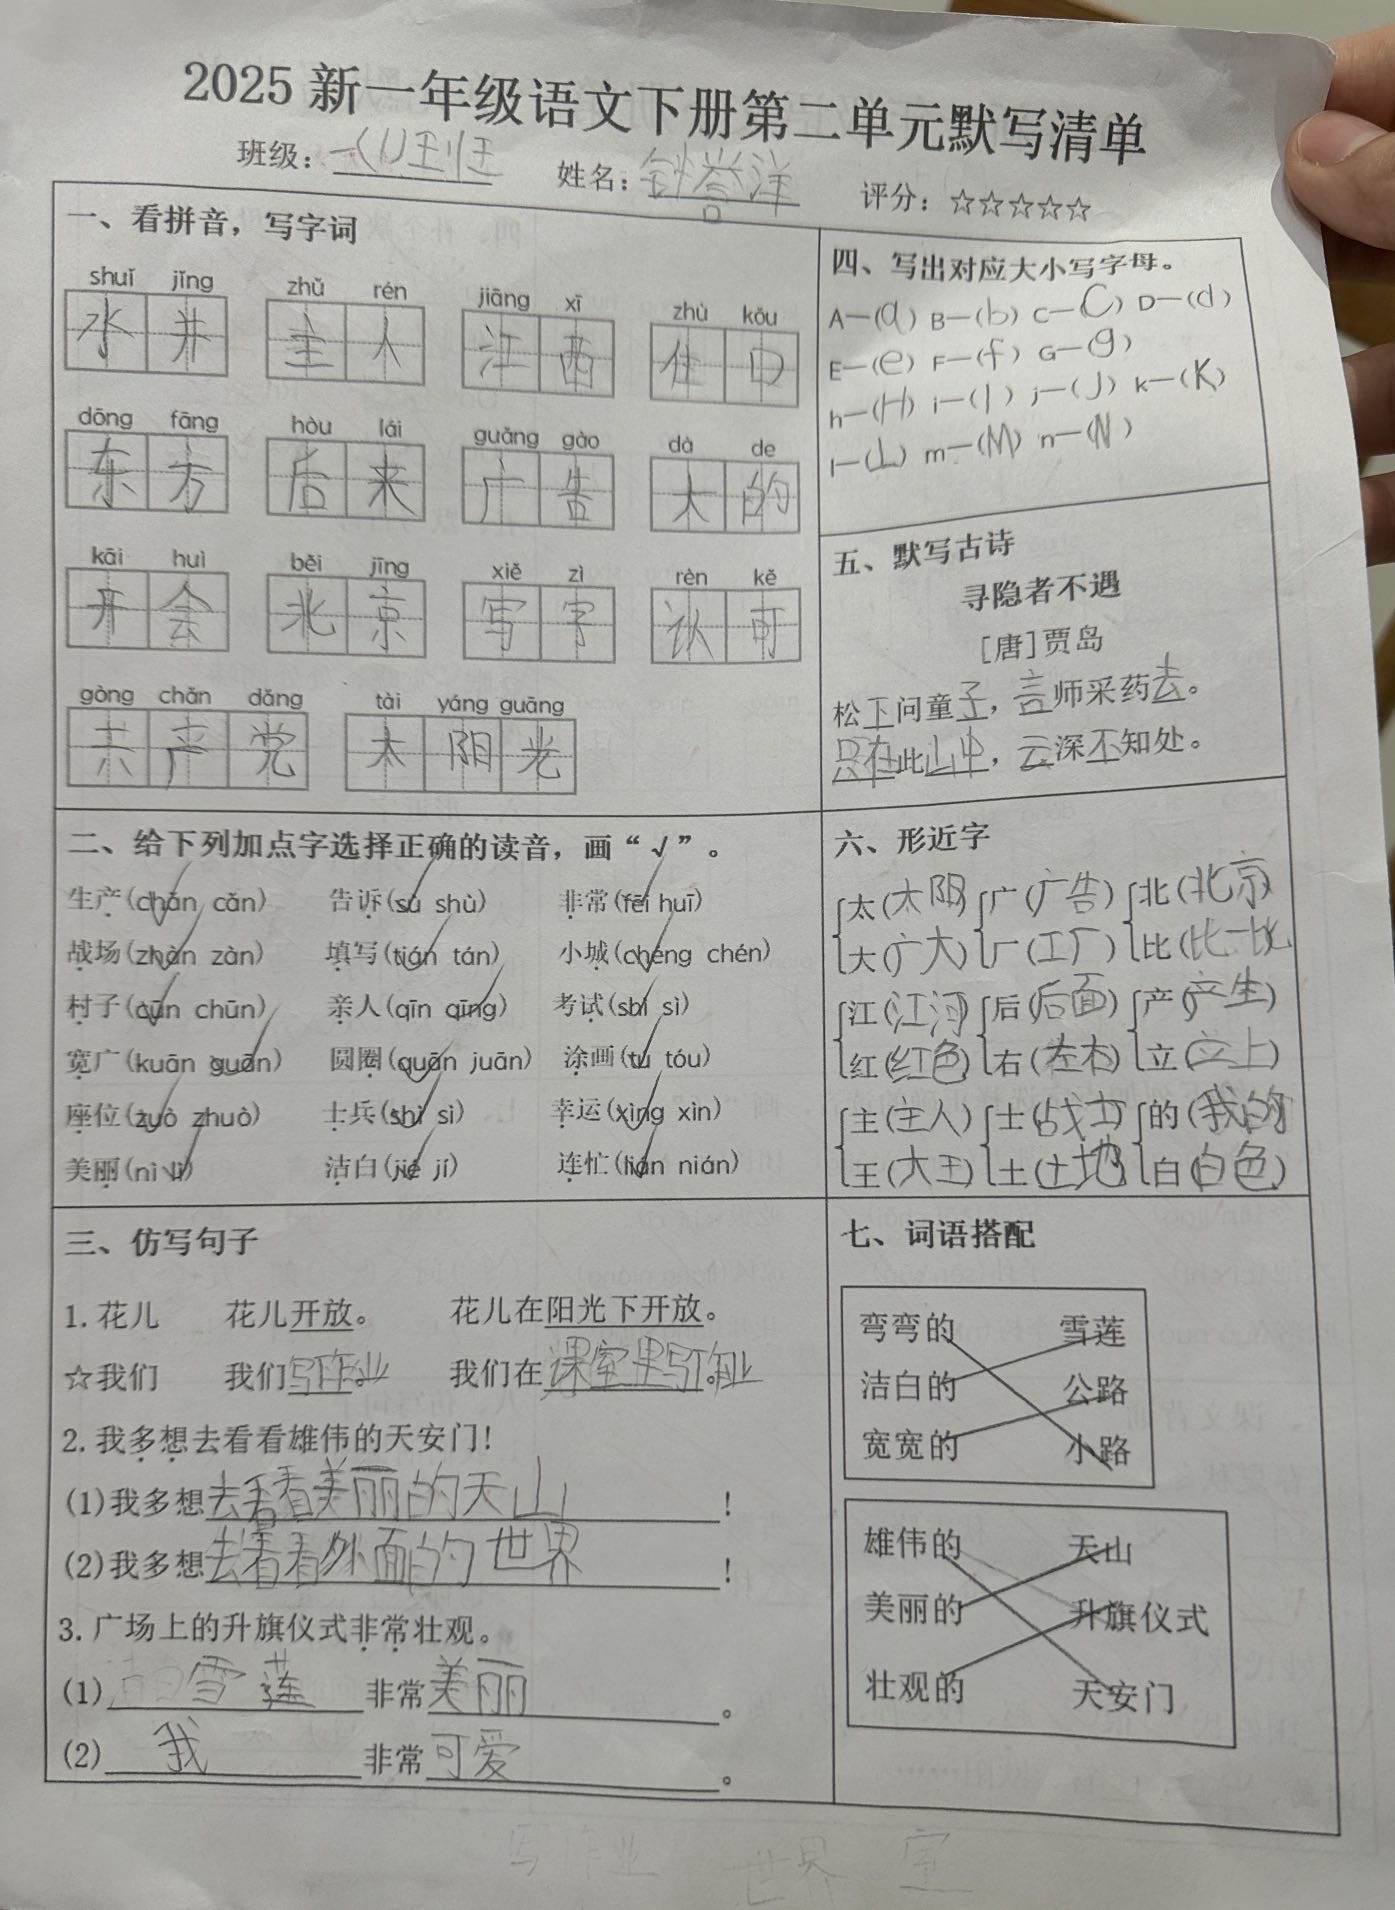 2025 新一年级语文下册第二单元默写清单
班级：一（1）班 姓名：钟誉洋 评分：☆☆☆☆☆
一、看拼音，写字词
shuǐ jǐng zhǔ rén jiāng xī zhù kǒu
水井 主人 江西 住口
dōng fāng hòu lái guǎng gào dà de
东方 后来 广告 大的
kāi huì běi jīng xiě zì rèn kě
开会 北京 写字 认可
gòng chǎn dǎng tài yáng guāng
共产党 太阳光
二、给下列加点字选择正确的读音，画“√”。
生产(chǎn cǎn) 告诉(sù shù) 非常(fēi huī)
战场(zhàn zàn) 填写(tián tán) 小城(chéng chén)
村子(cūn chūn) 亲人(qīn qīng) 考试(shì sì)
宽广(kuān guān) 圆圈(quān juān) 涂画(tú tóu)
座位(zuò zhuò) 士兵(shì sì) 幸运(xìng xìn)
美丽(nì lì) 洁白(jié jí) 连忙(lián nián)
三、仿写句子
1.花儿 花儿开放。 花儿在阳光下开放。
☆我们 我们写作业。 我们在课室里写作业。
2.我多想去看看雄伟的天安门！
(1)我多想去看看美丽的天山！
(2)我多想去看看外面的世界！
3.广场上的升旗仪式非常壮观。
(1)洁白雪莲非常美丽。
(2)我非常可爱。
四、写出对应大小写字母。
A—(a) B—(b) C—(C) D—(d)
E—(e) F—(f) G—(g)
h—(H) i—(I) j—(J) k—(K)
l—(L) m—(M) n—(N)
五、默写古诗
寻隐者不遇
[唐]贾岛
松下问童子，言师采药去。
只在此山中，云深不知处。
六、形近字
太(太阳) 广(广告) 北(北京)
大(广大) 厂(工厂) 比(比一比)
江(江河) 后(后面) 产(产生)
红(红色) 右(左右) 立(立上)
主(主人) 士(战士) 的(我的)
王(大王) 土(土地) 白(白色)
七、词语搭配
弯弯的 雪莲
洁白的 公路
宽宽的 小路
雄伟的 天山
美丽的 升旗仪式
壮观的 天安门
写作业 世界 室